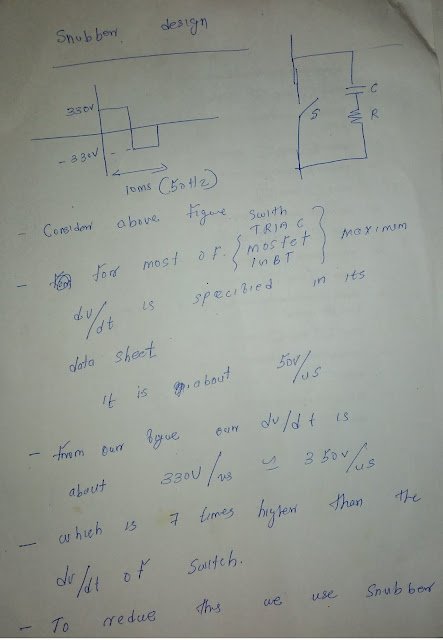 Snubber design
330V
- 330V
10ms (50Hz)
S
C
R
- Consider above Figure
- for most of. { Swith TRIAC mosfet IGBT } maximum
dv/dt is specified in its
data sheet
it is about 50V/us
- From our figue our dv/dt is
about 330V/us ≌ 350V/us
- which is 7 times higher than the
dv/dt of Switch.
- To redue this we use Snubber